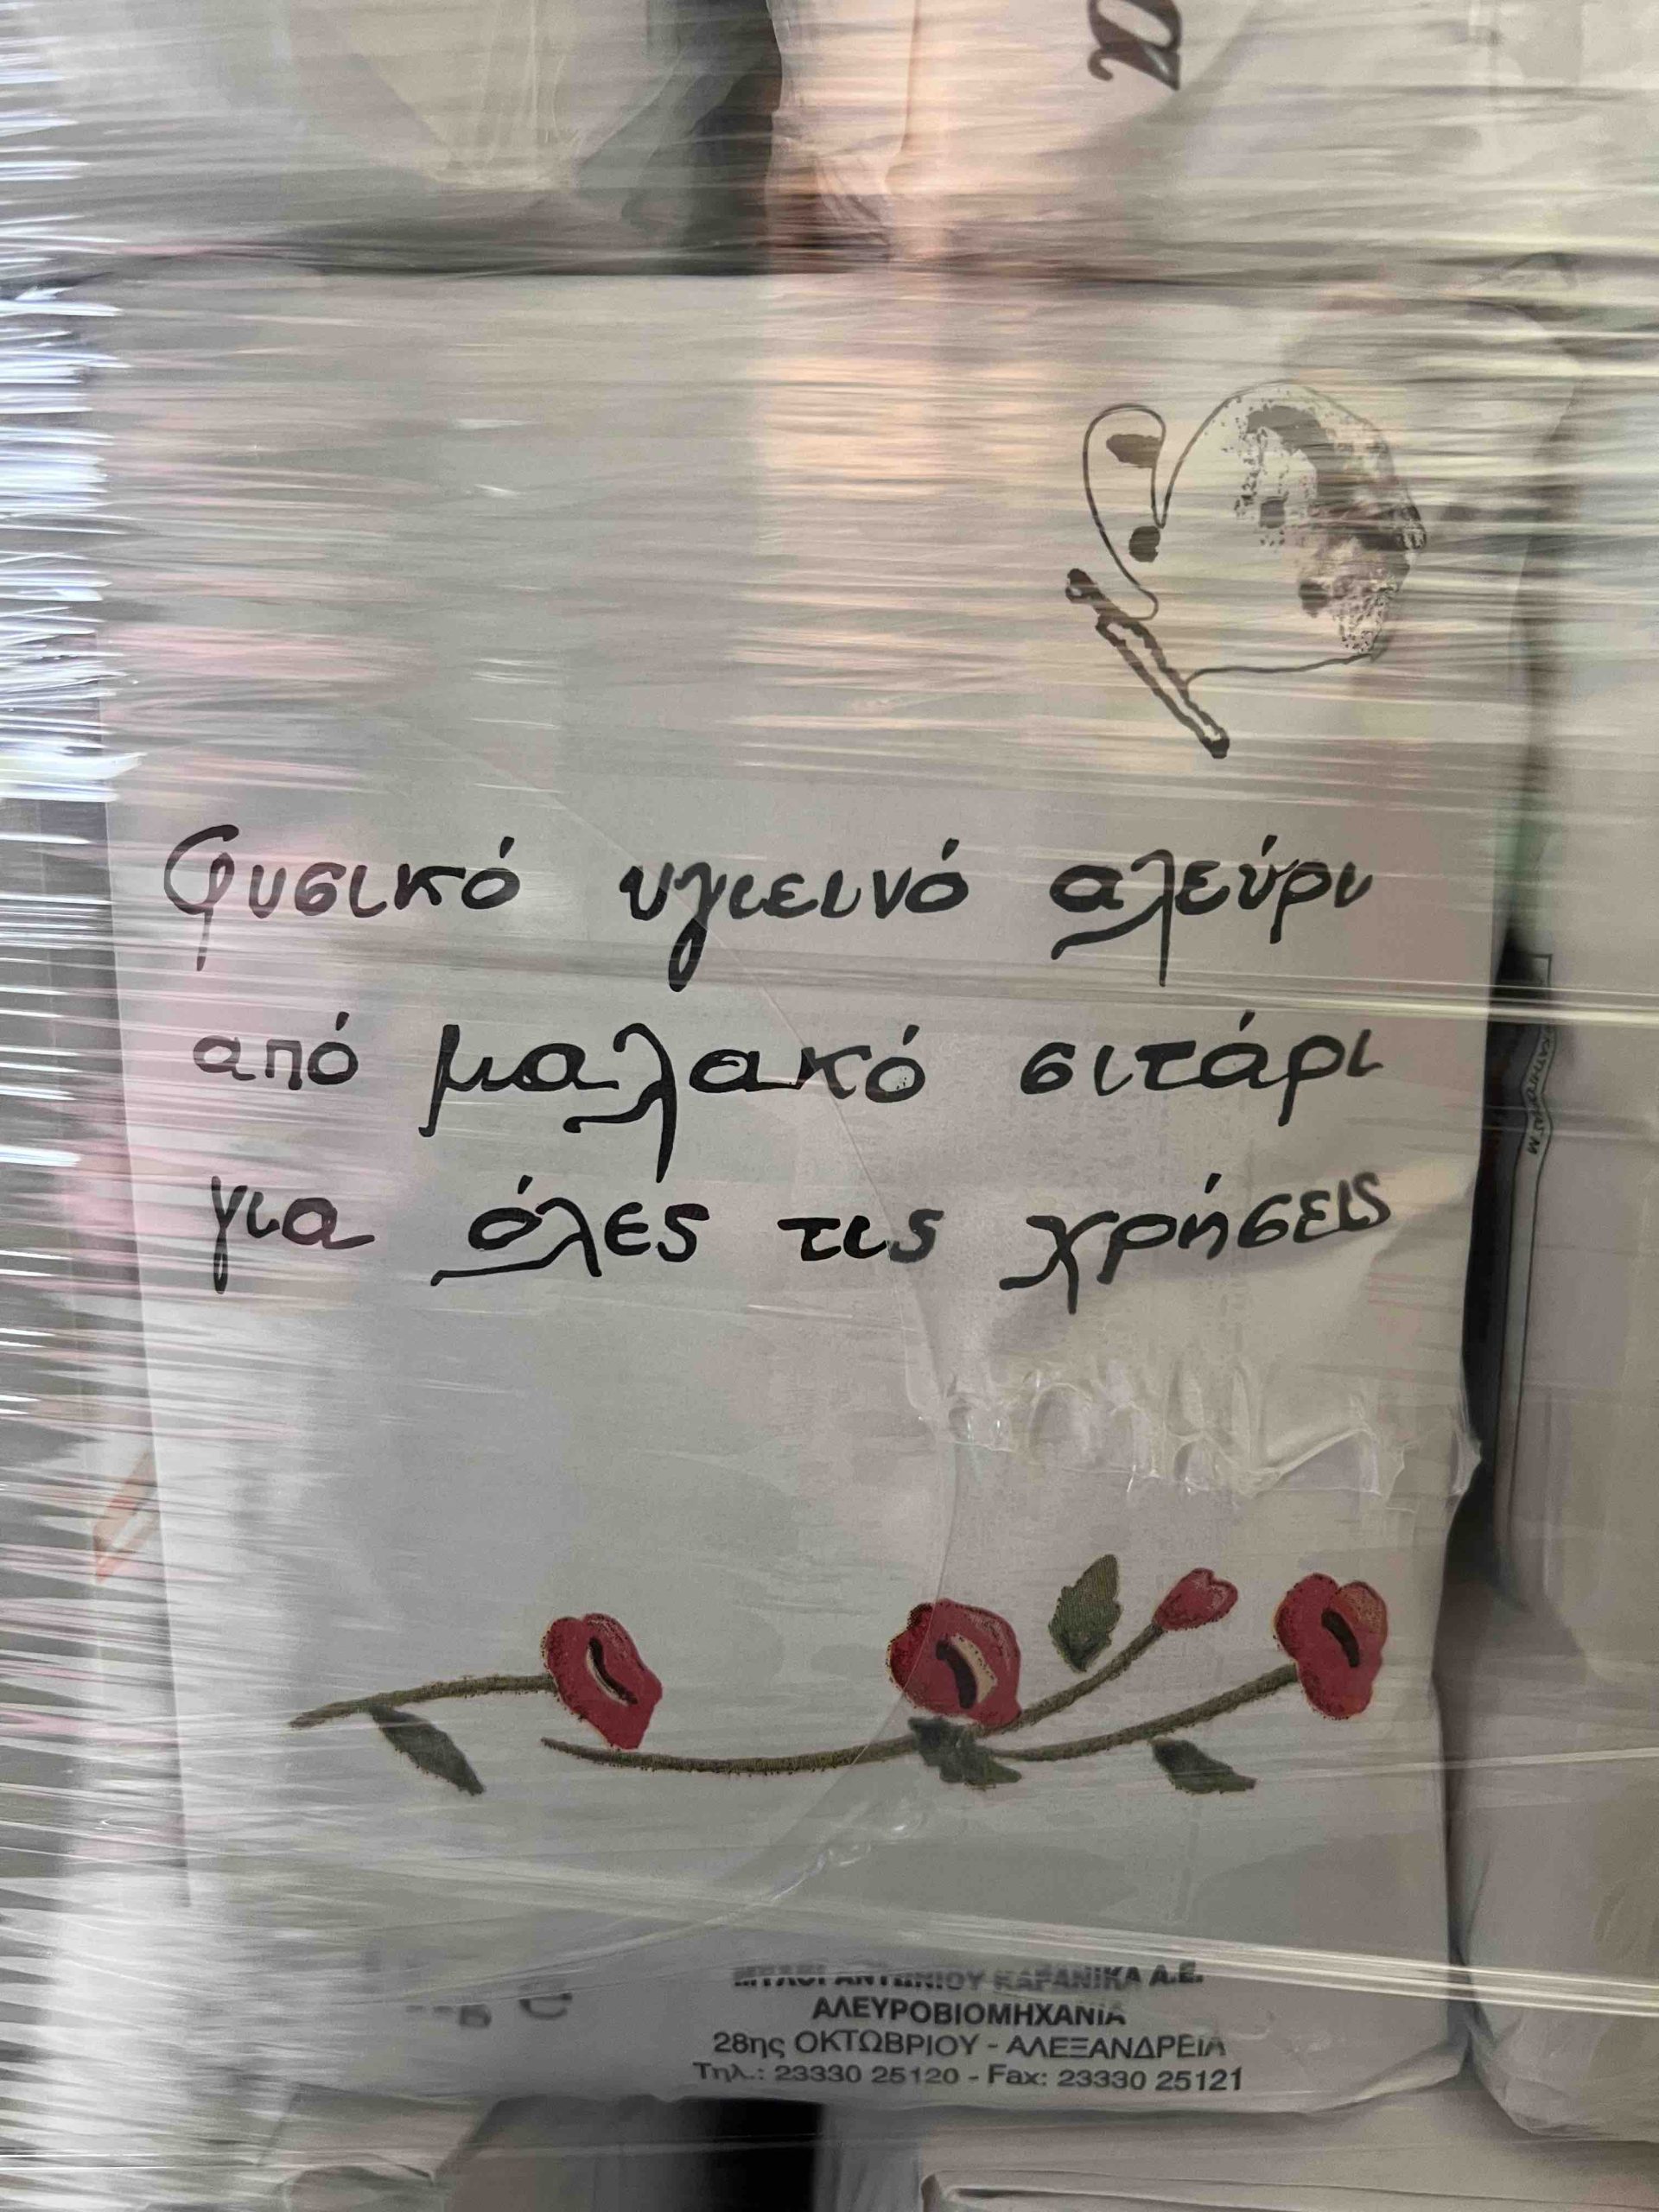 Φυσικό υγιεινό αλεύρι
από μαλακό σιτάρι
για όλες τις χρήσεις
ΜΥΛΟΙ ΑΝΤΩΝΙΟΥ ΚΑΡΑΝΙΚΑ Α.Ε.
ΑΛΕΥΡΟΒΙΟΜΗΧΑΝΙΑ
28ης ΟΚΤΩΒΡΙΟΥ - ΑΛΕΞΑΝΔΡΕΙΑ
Τηλ.: 23330 25120 - Fax: 23330 25121